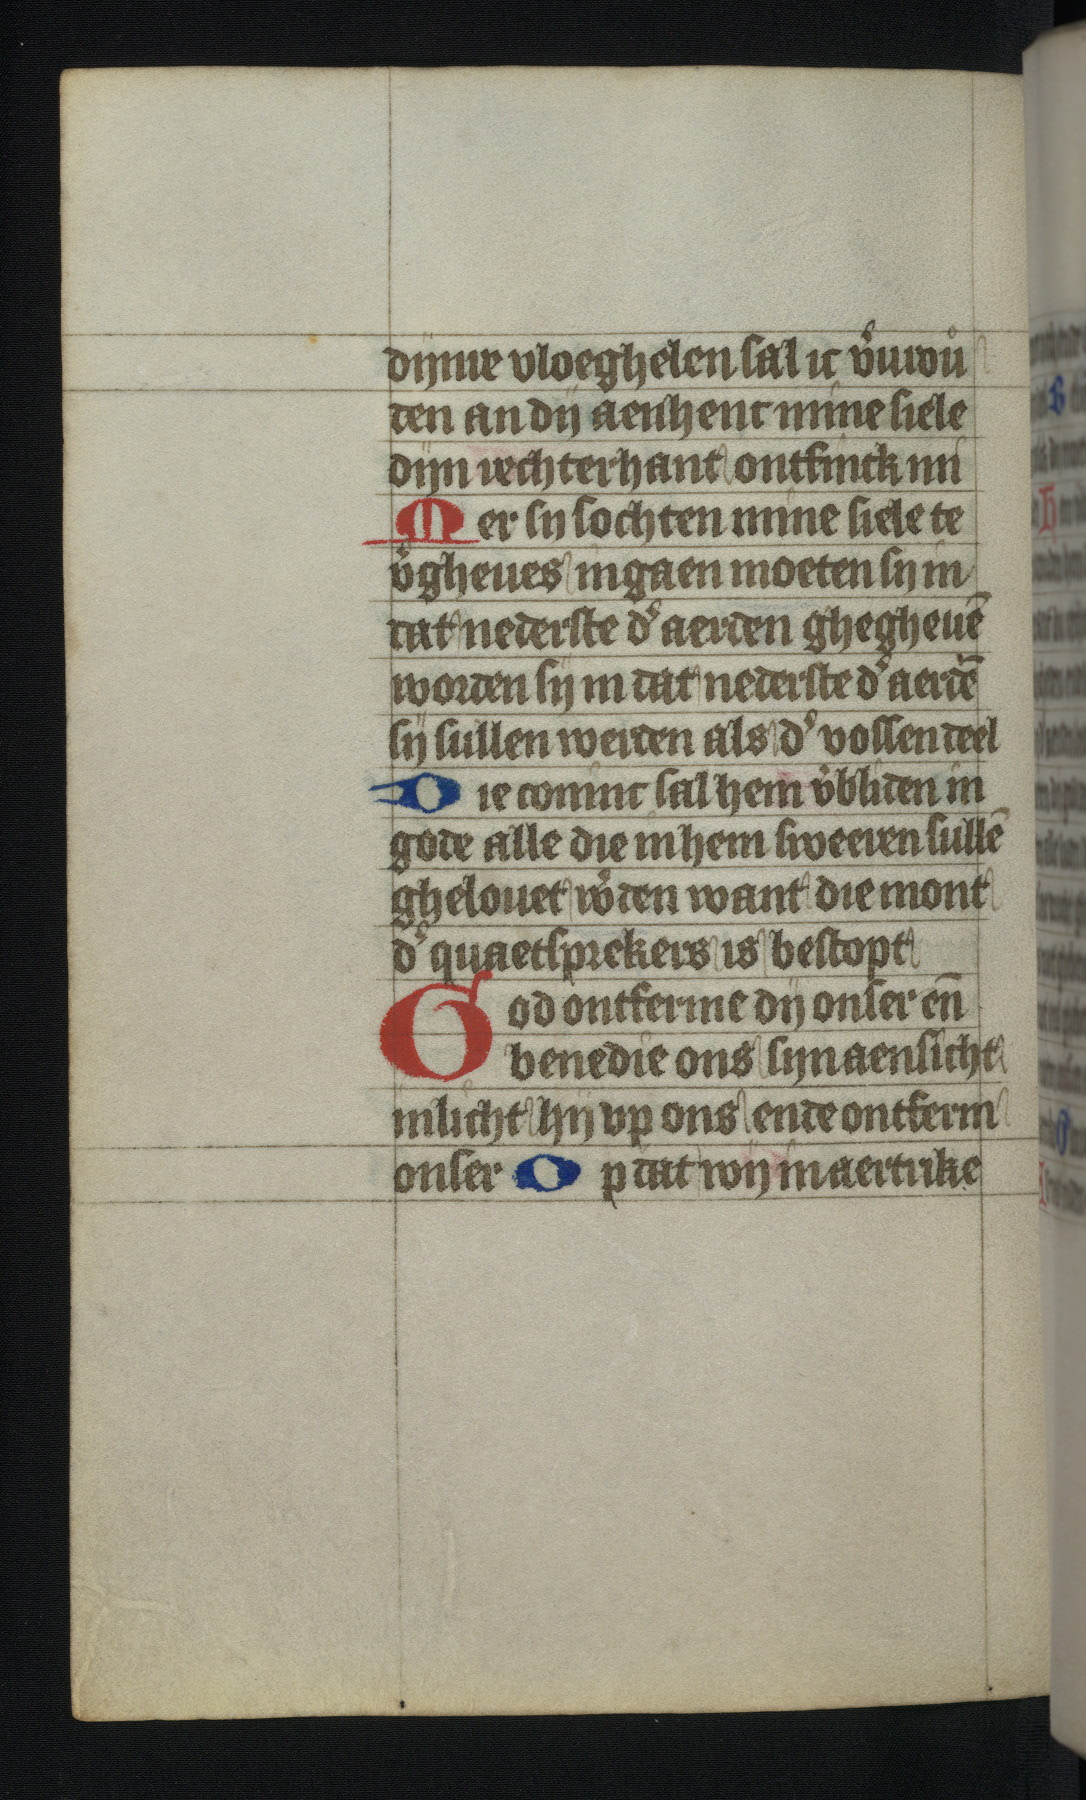 dijnre vloeghelen sal ic v̉uwoů
den an dij aenhenc mine siele
dijn rechterhant ontfinck mi
Mer sij sochten mine siele te
v̉gheues ingaen moeten sij in
dat nederste d̉ aerden ghegheuē
worden sij in dat nederste d̉ aerdē
sij sullen werden als d̉ vossen deel
Die coninc sal hem v̉bliden in
gode alle die in hem sweeren sullē
ghelouet w̉den want die mont
d̉ quaetsprekers is bestopt
God ontferme dij onser en̄
benedie ons sijn aensicht
inlicht hij vp ons ende ontferm
onser Op dat wij in aertrike